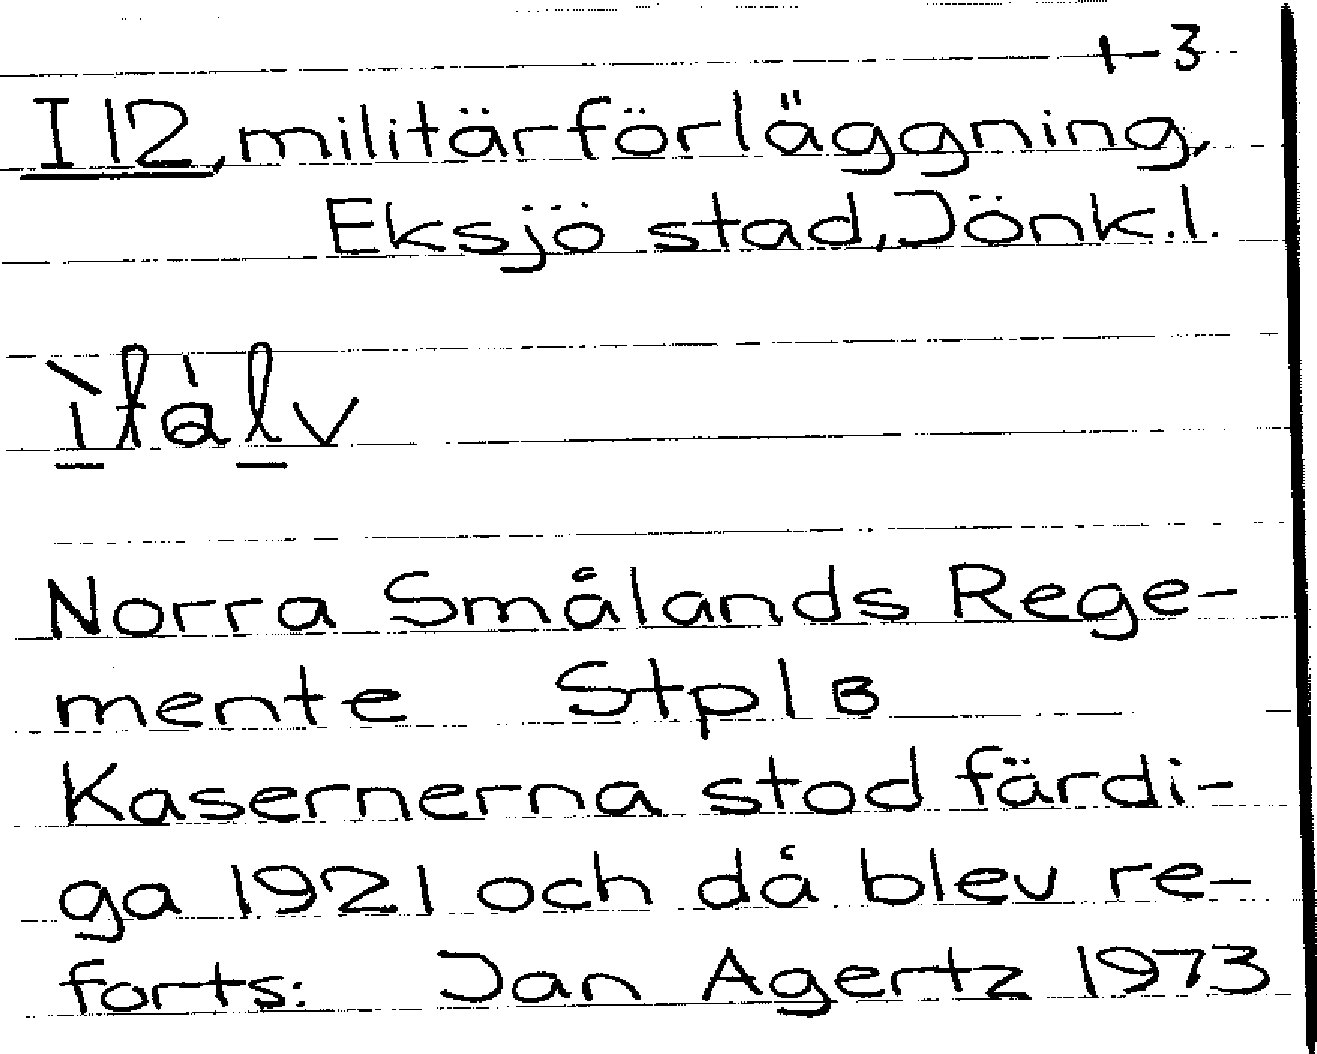 1-3
I 12, militärförläggning,
Eksjö stad, Jönk.l.
Norra Smålands Rege-
mente Stpl B
Kasernerna stod färdi-
ga 1921 och då blev re-
forts: Jan Agertz 1973